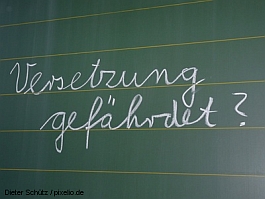 Versetzung
gefährdet?
Dieter Schütz / pixelio.de